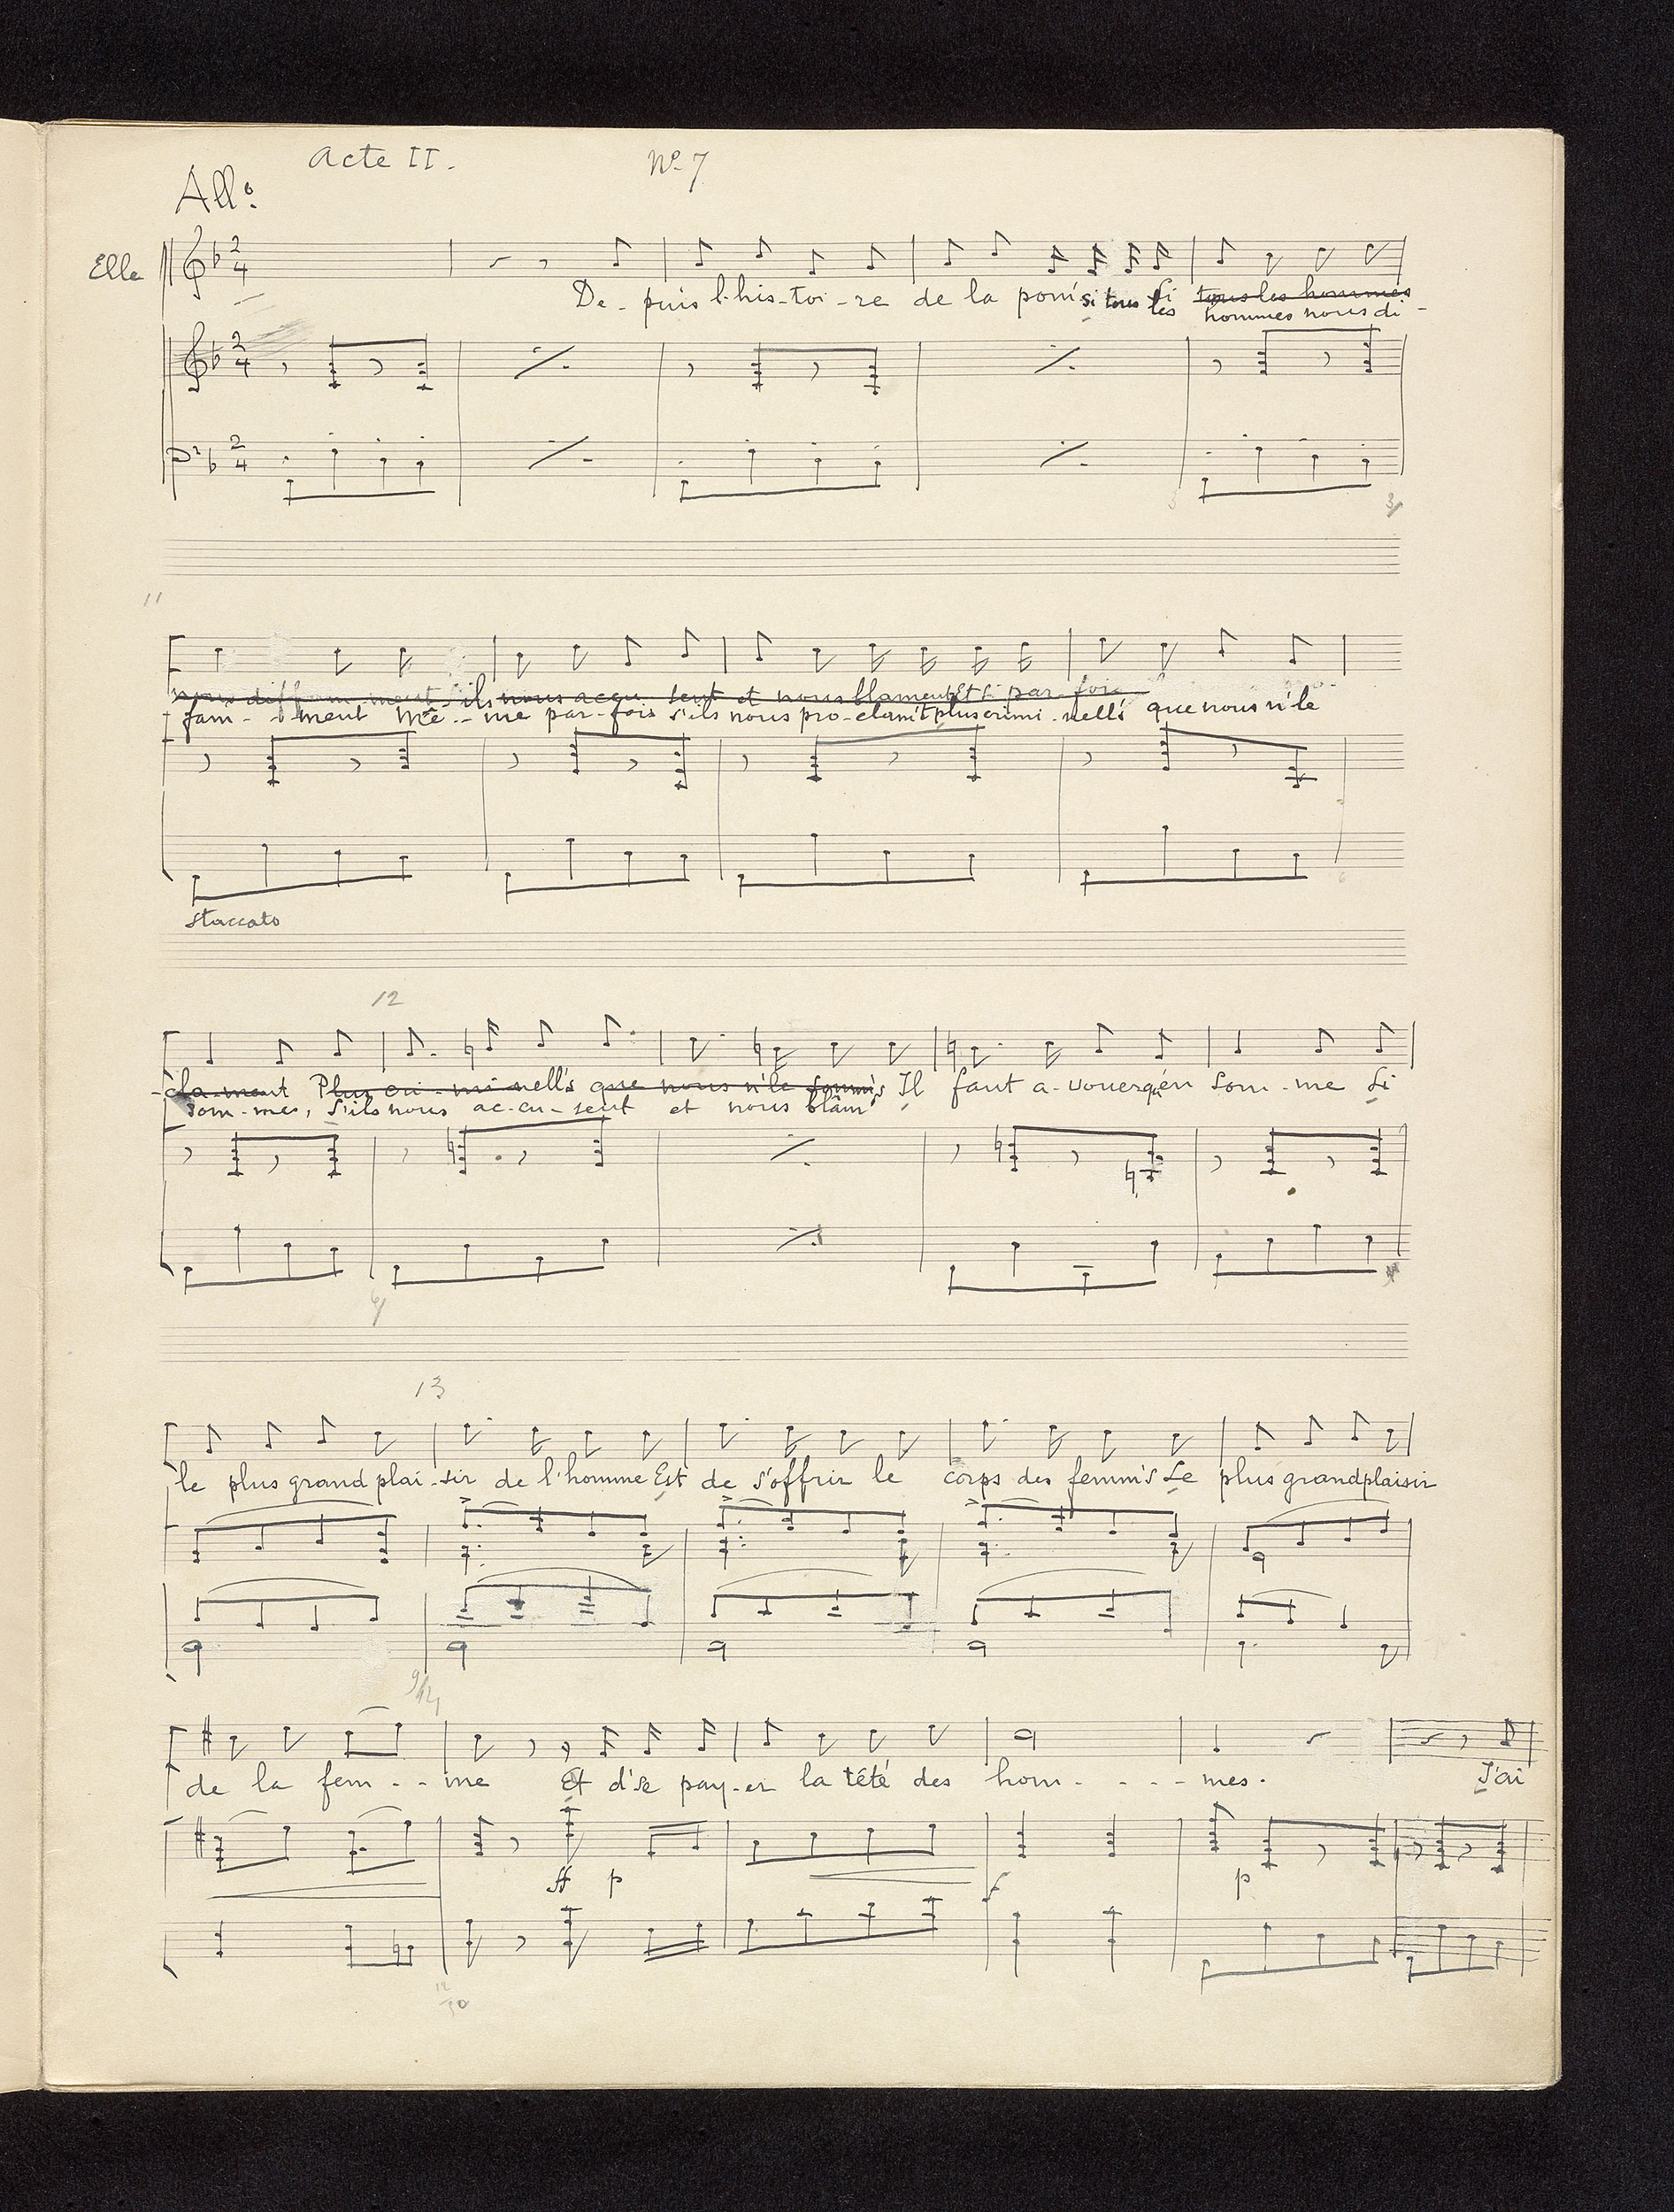 Acte II. No. 7
Allo.
Elle
De - puis l'his - toi - re de la pom' si tous les tous les hommes
hommes nous di -
11
nous diffam ment s'ils nous accu sent et nous blament Et si par - fois
fam - ment mê - me par - fois s'ils nous pro - clam't plus crimi - nell's que nous n'le
staccato
12
- cla - ment Plus cri - mi - nell's que nous n'le somm's Il faut a - vouer qu'en som - me si
som - mes, s'ils nous ac - cu - sent et nous blâm'
13
le plus grand plai - sir de l'homme Est de s'offrir le corps des femm's Le plus grand plaisir
de la fem - - me Et d'se pay - er la têté des hom - - - - mes. J'ai
ff p f p